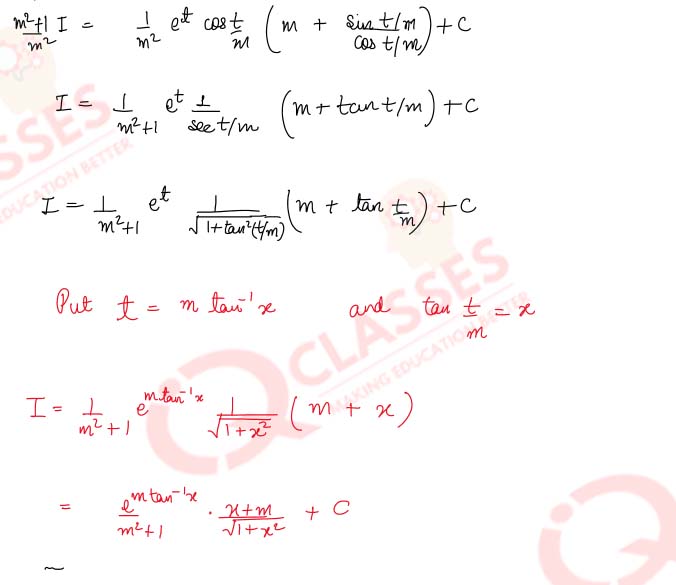 m²+1/m² I = 1/m² e^t cos t/m (m + sin t/m / cos t/m) + C
I = 1/m²+1 e^t 1/sec t/m (m + tan t/m) + C
I = 1/m²+1 e^t 1/√1+tan²(t/m) (m + tan t/m) + C
Put t = m tan⁻¹x and tan t/m = x
I = 1/m²+1 e^m tan⁻¹x 1/√1+x² (m + x)
= e^m tan⁻¹x / m²+1 · x+m/√1+x² + C
CLASSES
EDUCATION BETTER
IQ CLASSES
MAKING EDUCATION BETTER